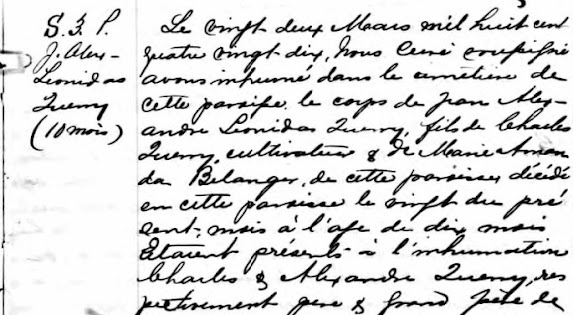 S. 3. P.
J. Alex-
Leonidas
Querry
(10 mois)
Le vingt deux Mars mil huit cent
quatre vingt dix, Nous Curé soussigné
avons inhumé dans le cimetière de
cette paroisse le corps de Jean Alex-
andre Leonidas Querry, fils de Charles
Querry, cultivateur & de Marie Aman
da Belanger, de cette paroisse, décédé
en cette paroisse le vingt du pré
sent mois à l'age de dix mois
Etaient présents à l'inhumation
Charles & Alexandre Querry, res
pectivement père & grand père de